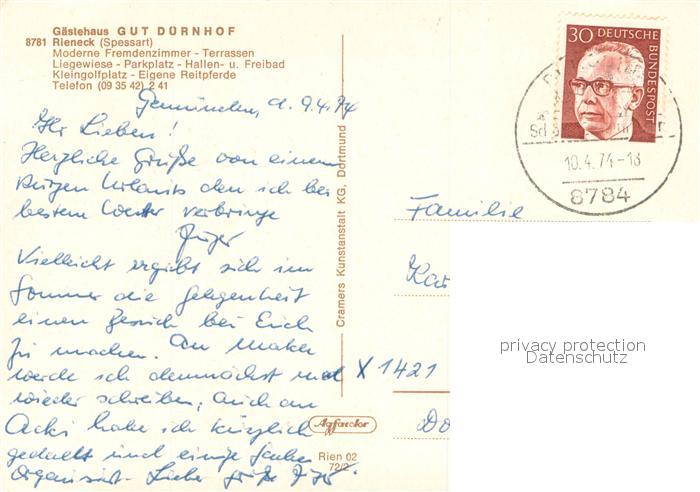 Gästehaus GUT DÜRNHOF
8781 Rieneck (Spessart)
Moderne Fremdenzimmer - Terrassen
Liegewiese - Parkplatz - Hallen- u. Freibad
Kleingolfplatz - Eigene Reitpferde
Telefon (09 35 42) 2 41
Gemünden, d. 9.4.74
Ihr Lieben!
Herzliche Grüße von einem
kurzen Urlaub den ich bei
bestem Wetter verbringe
Vielleicht ergibt sich im
Sommer die gelegenheit
einen Besuch bei Euch
zu machen. An
werde ich demnächst mal
wieder schreiben, auch an
habe ich kürzlich
gedacht und einige
organisiert. Liebe grüße
Cramers Kunstanstalt KG, Dortmund
Agfacolor
Rien 02
72/2
30 DEUTSCHE
BUNDESPOST
10.4.74-18
8784
Familie
Kar
X 1421
Do
privacy protection
Datenschutz